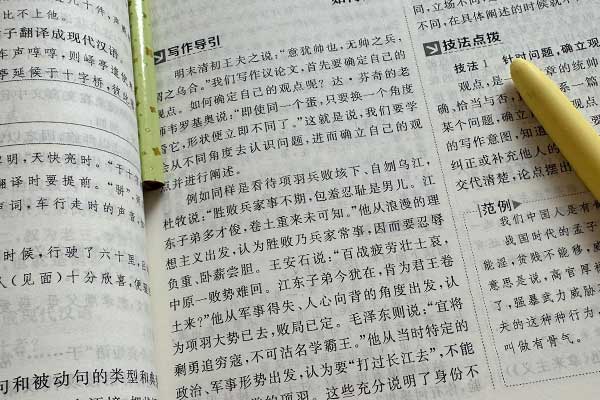 比不上他。
子翻译成现代汉语
车声哼哼,则
亭延候于十字桥,
明,天快亮时。
翻译时要提前。
声词,车行走时的声音,
时候,行驶了六十里,
人(见面)十分欣喜,
句和被动句的类型和
写作导引
明末清初王夫之说:“意犹帅也,无帅之兵,
谓之乌合。”我们写作议论文,首先要确定自己的
观点。如何确定自己的观点呢?达·芬奇的老
师韦罗基奥说:“即使同一个蛋,只要换一个角度
看它,形状便立即不同了。”这就是说,我们要学
会从不同角度去认识问题,进而确立自己的观
点并进行阐述。
例如同样是看待项羽兵败垓下、自刎乌江,
杜牧说:“胜败兵家事不期,包羞忍耻是男儿。江
东子弟多才俊,卷土重来未可知。”他从浪漫的理
想主义出发,认为胜败乃兵家常事,因而要忍辱
负重、卧薪尝胆。王安石说:“百战疲劳壮士哀,
中原一败势难回。江东子弟今犹在,肯为君王卷
土来?”他从军事得失、人心向背的角度出发,认
为项羽大势已去,败局已定。毛泽东则说:“宜将
剩勇追穷寇,不可沽名学霸王。”他从当时特定的
政治、军事形势出发,认为要“打过长江去”,不能
学的项羽。这些充分说明了身份不
同,立场不同,
不同,在具体阐述的时候就
技法点拨
技法1 针对问题,确立观
观点,是
章的统帅
确,恰当与否,
一篇
某个问题,确立
观点
的写作意图,知道
纠正或补充他人的
交代清楚,论点摆出
范例
我们中国人是有骨
战国时代的孟子
能淫,贫贱不能移,威
意思是说,高官厚禄
了,强暴武力威胁
夫的这种种行为,
叫做有骨气。